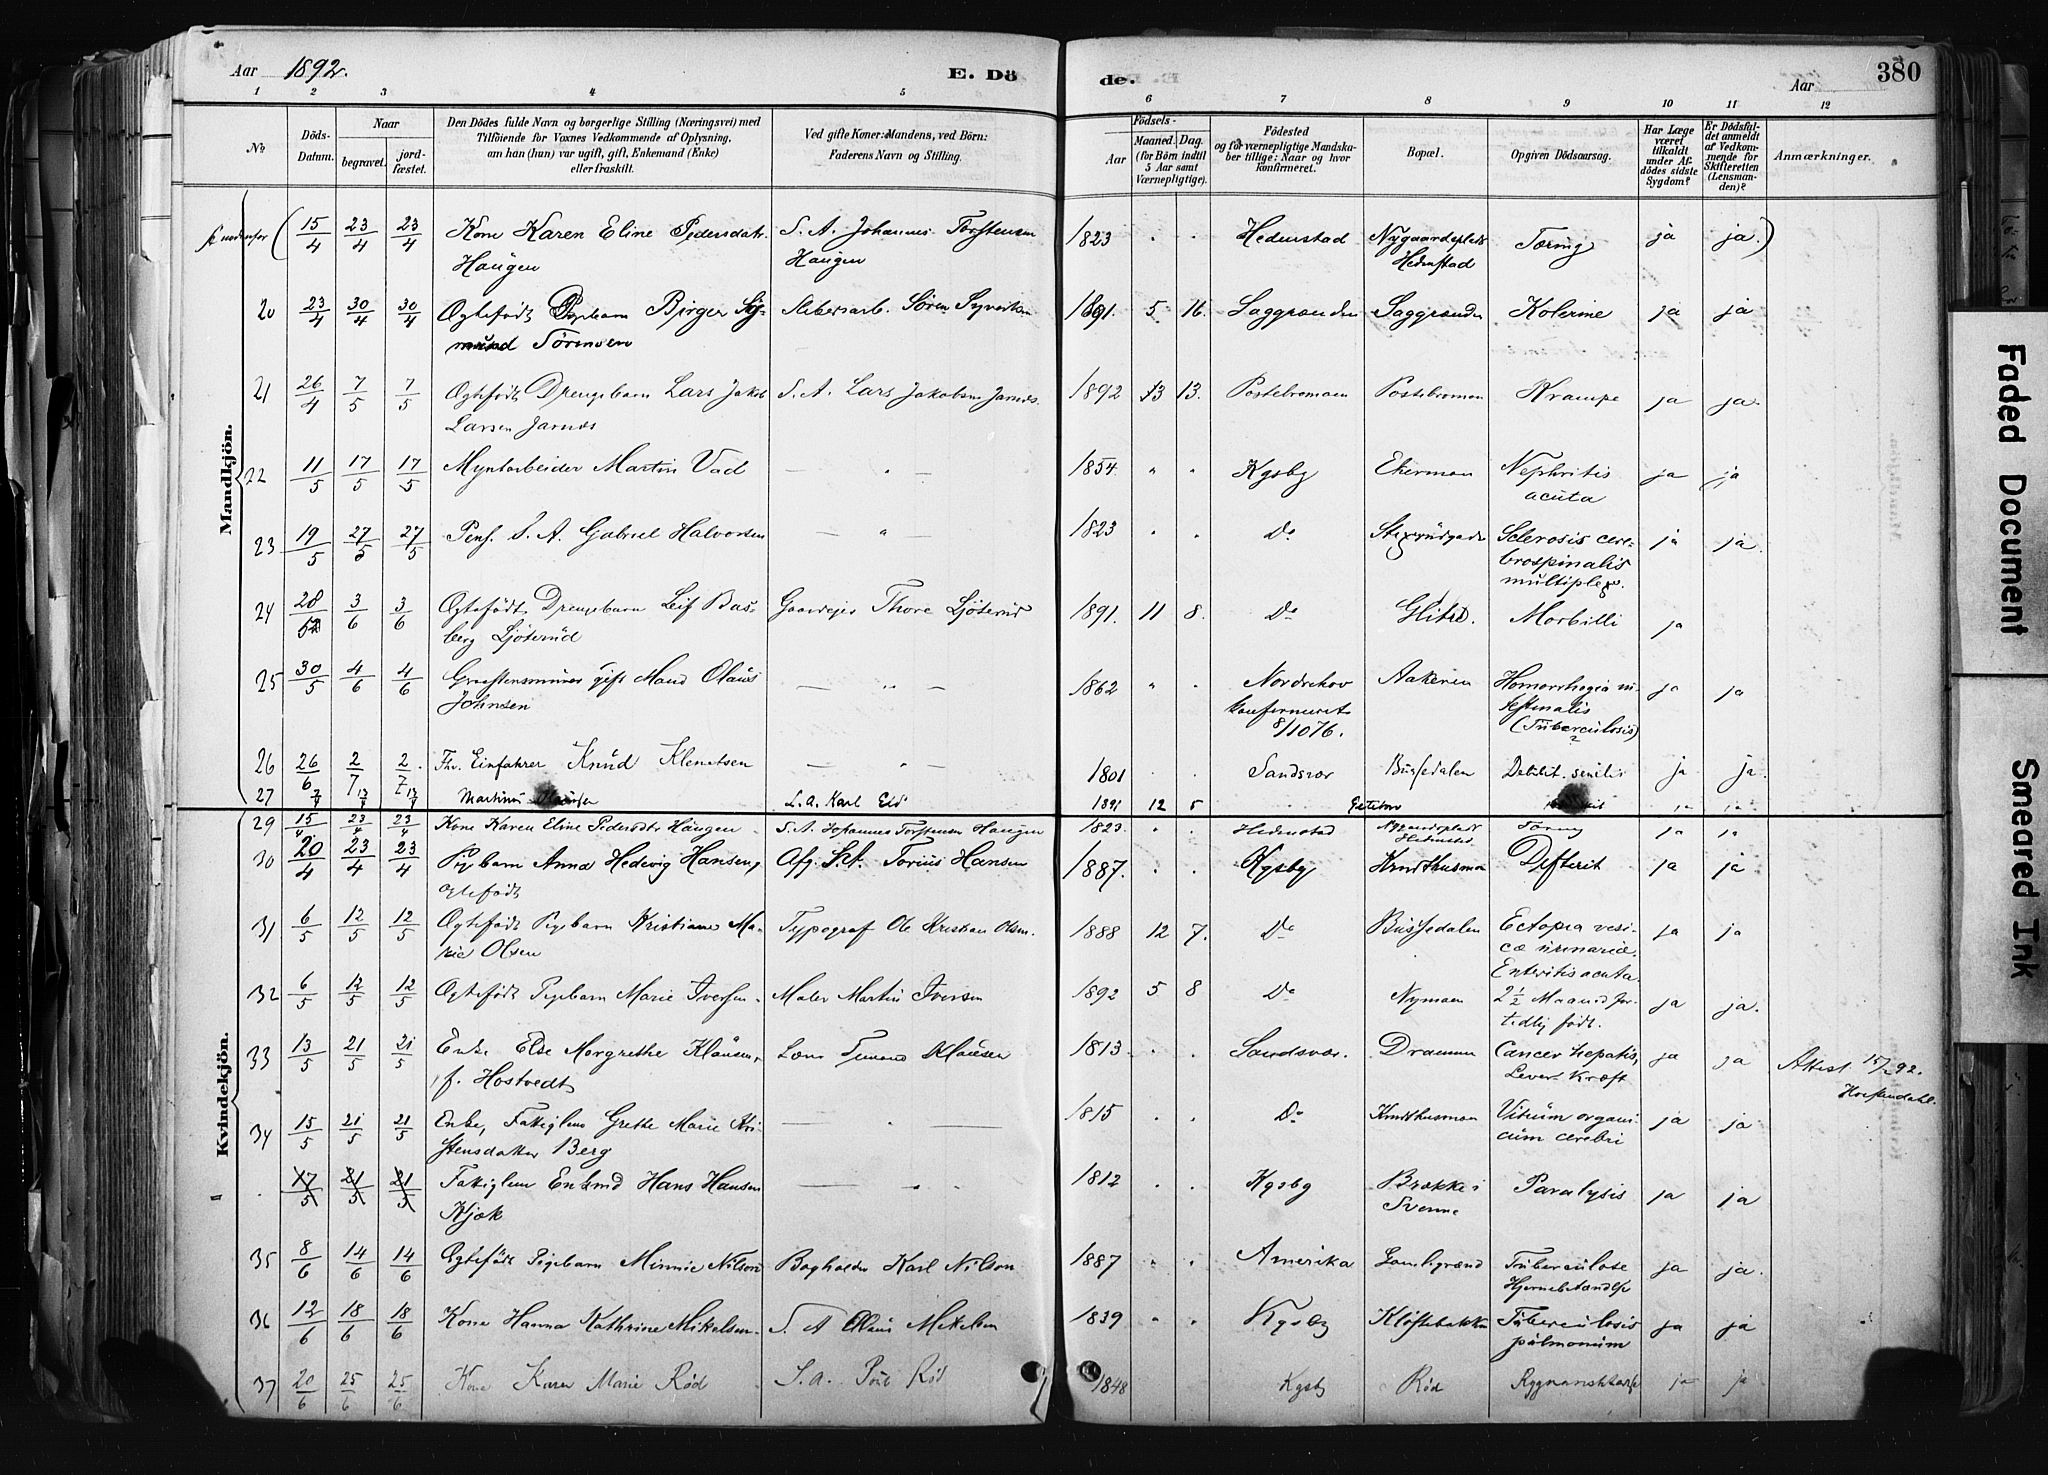 Aar 1892.
E. Dö
de.
Aar
380
1 2 3 4 5 6 7 8 9 10 11 12
No
Döds-
Datum.
Naar
begravet.
jord-
fæstet.
Den Dödes fulde Navn og borgerlige Stilling (Næringsvei) med
Tilföiende for Voxnes Vedkommende af Oplysning,
om han (hun) var ugift, gift, Enkemand (Enke)
eller fraskilt.
Ved gifte Koner: Mandens, ved Börn:
Faderens Navn og Stilling.
Födsels-
Aar
Maaned.
Dag.
(for Börn indtil
5 Aar samt
Værnepligtige).
Födested
og for værnepligtige Mandska-
ber tillige: Naar og hvor
konfirmeret.
Bopæl.
Opgiven Dödsaarsag.
Har Læge
været
tilkaldt
under Af-
dödes sidste
Sygdom?
Er Dödsfal-
det anmeldt
af Vedkom-
mende for
Skifteretten
(Lensman-
den)?
Anmærkninger.
Mandkjön.
( 15/4 23/4 23/4 Kone Karen Eline Pedersdatr S. A. Johannes Torstensen 1823 " " Hedenstad Nygaardsplads Tæring ja ja )
Haugen Haugen Hedenstad
20 23/4 30/4 30/4 Ægtefødt Birger Sig- Søren Syvertsen 1891. 5 16. Saggrenden Saggrenden Kolerine ja ja
mund Sörensen
21 26/4 7/5 7/5 Ægtefødt Drengebarn Lars Jakob S. A. Lars Jakobsen Jarnæs. 1892 3 13. Postebromoen Postebromoen Krampe ja ja.
Larsen Jarnæs
22 11/5 17/5 17/5 Myntarbeider Martin Vad — " — 1854. " " Kgsbg Ekermoen Nephritis ja ja
acuta
23 19/5 27/5 27/5 Pens. S. A. Gabriel Halvorsen — " — 1823 " " Do Sclerosis cere- ja ja.
brospinalis
multiplex.
24 28/5 3/6 3/6 Ægtefødt Drengebarn Leif Bas- Gaardejer Thore Ljöterud 1891. 11 8. Do Glitre. Morbilli ja
berg Ljöterud
25 30/5 4/6 4/6 gift Mand Olaus — " — 1862 " " Nordrehov Aakeren ja ja
Johnsen konfirmeret
(Tuberculosis)
26 26/6 2/7 2/7 Fhv. Einfahrer Knud Klemetsen — " — 1801 " " Sandsvær Bussedalen Debilit. senilis ja ja.
27 Martinus S. A. Karl 1891 12 5 ja ja
Kvindekjön.
29 15/4 23/4 23/4 Kone Karen Eline Pedersdtr Haugen S. A. Johannes Torstensen Haugen 1823. " " Hedenstad Nygaardsplads Tæring ja ja
Hedenstad
30 20/4 23/4 23/4 Pigebarn Anna Hedevig Hansen, Afg. S. A. Torius Hansen 1887. " " Kgsbg Knuthusmoen Difterit ja ja
ægtefødt
31 6/5 12/5 12/5 Ægtefødt Pigebarn Kristiane Ma- Typograf Ole Kristian Olsen. 1888 12 7. Do Bussedalen Ectopia vesi- ja ja
rie Olsen cæ urinariæ.
Enteritis acuta.
32 6/5 12/5 12/5 Ægtefødt Pigebarn Marie Iversen. Maler Martin Iversen 1892 5 8 Do Nymoen 2 1/2 Maaned for ja ja.
tidlig født.
33 13/5 21/5 21/5 Enke Else Margrethe Klausen, Klausen 1813. " " Sandsvær. Drammen Cancer hepatis, ja ja Attest 15/2 92.
f. Hostvedt Lever-Kræft
34 15/5 21/5 21/5 Enke, Fattiglem Grethe Marie Kri- — " — 1815 " " Do Knuthusmoen Vitium organi- ja ja
stensdatter Berg cum cerebri
" 17/5 21/5 21/5 Fattiglem Enkmd Hans Hansen — " " 1812 " " Kgsbg Brække i Paralysis ja ja
Kjøk Svenne
35 8/6 14/6 14/6 Ægtefødt Pigebarn Minnie Nilson Bogholder Karl Nilson 1887 " " Amerika Gamlegrænd Tuberculose ja ja.
Hjernebetændelse
36 12/6 18/6 18/6 Kone Hanna Kathrine Mikelsen. S. A Olaus Mikelsen 1839 " " Kgsbg Kløftebakken Tuberculosis ja ja
pulmonum
37 20/6 25/6 25/6 Kone Karen Marie Rød S. A. Rød 1848 Kgsbg Rød ja ja
Faded Document
Smeared Ink